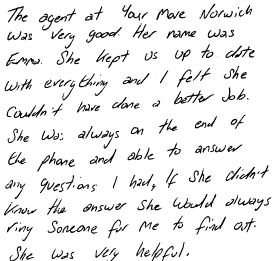 The agent at Your Move Norwich
was very good. Her name was
Emma. She kept us up to date
with everything and I felt she
couldn't have done a better job.
She was always on the end of
the phone and able to answer
any questions I had, If she didn't
know the answer she would always
ring someone for me to find out.
She was very helpful.